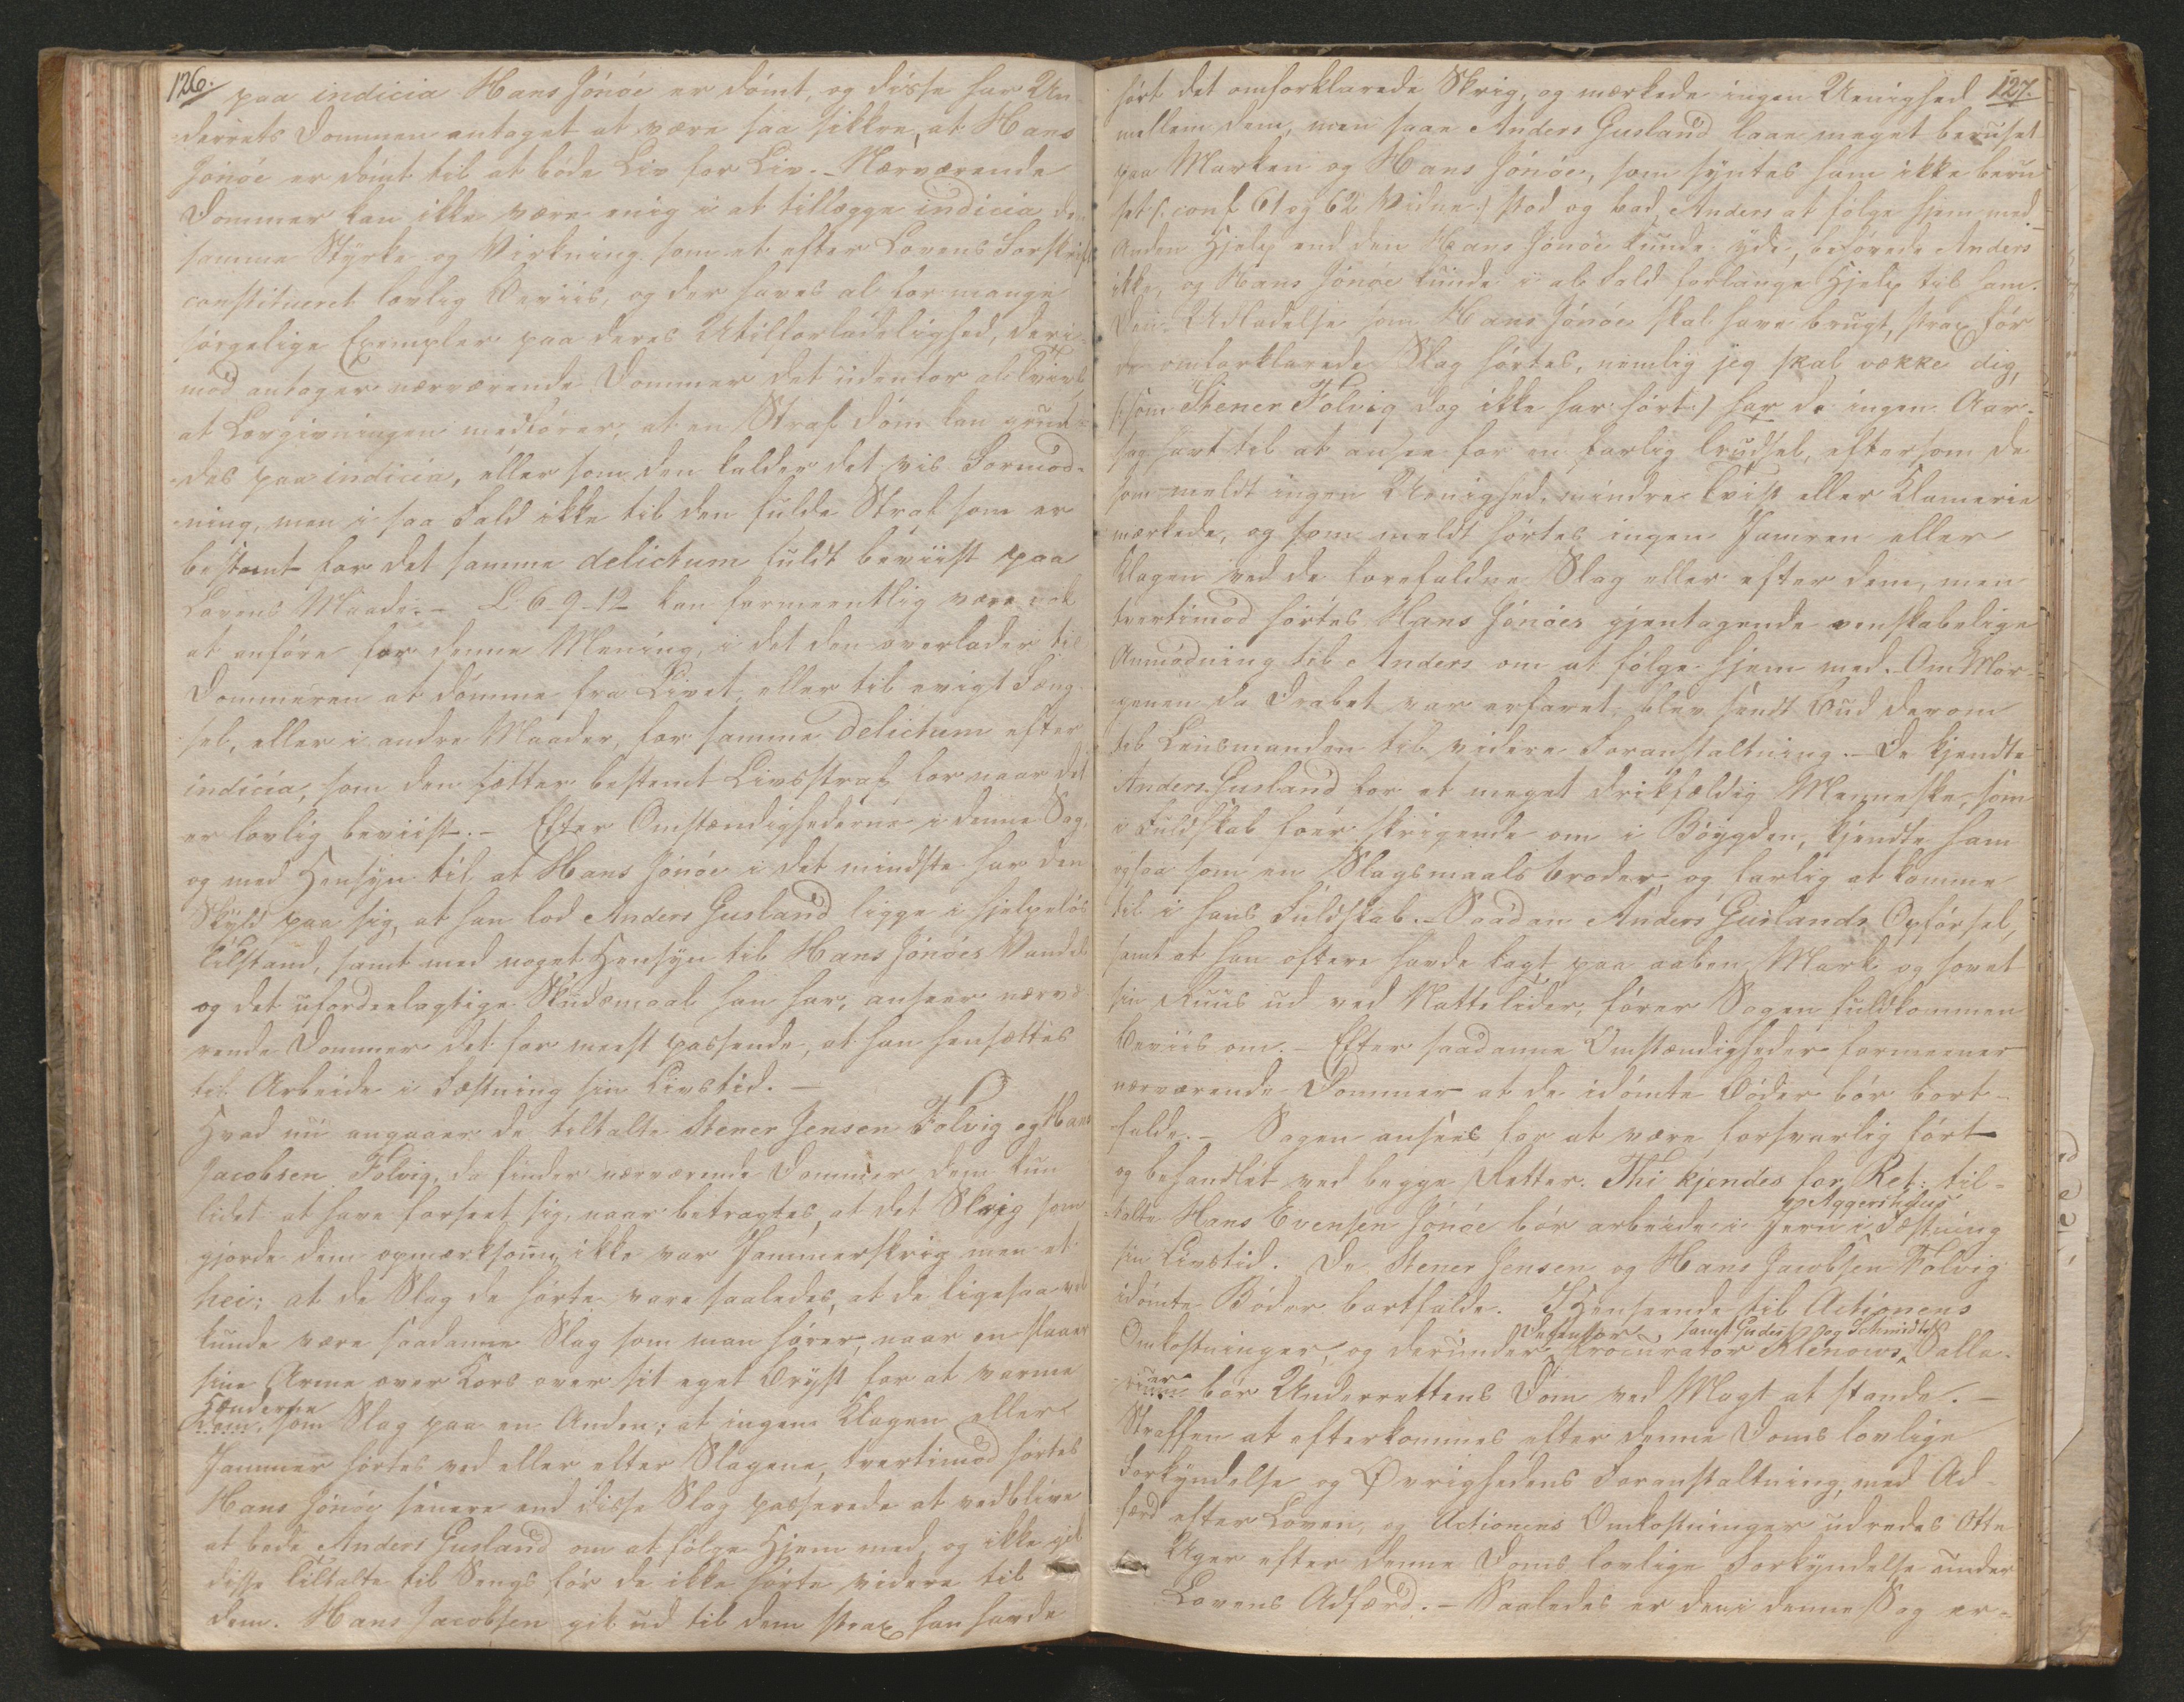 126.
paa indicia Hans Jónóe er dómt, og disse har Un-
derrets Dommen antaget at være saa sikkre, at Hans
Jónóe er dómt til at bóde Liv for Liv. - Nærværende
Dommer kan ikke være enig i at tillægge indicia den
samme Styrke og Virkning som et efter Lovens Forskrift
constitueret lovlig Beviis, og der haves al for mange
sórgelige Exempler paa deres Utilforladelighed, deri-
mod antager nærværende Dommer det udenfor al Tvivl,
at Lovgivningen medfórer, at en Straf Dóm kan grun-
des paa indicia, eller som den kalder det vis Formod-
ning, men i saa Fald ikke til den fulde Straf som er
bestemt for det samme delictum fuldt beviist paa
Lovens Maade. - L. 6-9-12 kan formeentlig være nok
at anfóre for denne Mening, i det den overlader til
Dommeren at dómme fra Livet, eller til evigt Fæng-
sel, eller i andre Maader, for samme Delictum efter
indicia, som den sætter bestemt Livsstraf for naar det
er lovlig beviist. - Efter Omstændighederne i denne Sag,
og med Hensyn til at Hans Jónóe i det mindste har den
Skyld paa sig, at han lod Anders Gusland ligge i hjelpelós
Tilstand, samt med noget Hensyn til Hans Jónóes Vandel
og det ufordeelagtige Skudsmaal han har, anseer nærvæ-
rende Dommer det for meest passende, at han hensættes
til Arbeide i Fæstning sin Livstid. -
Hvad nu angaaer de tiltalte Stener Jensen Folvig og Hans
Jacobsen Folvig, da finder nærværende Dommer dem kun
lidet at have forseet sig, naar betragtes, at det Skrig som
gjorde dem opmærksom, ikke var Jammerskrig men et
hei; at de Slag de hórte vare saaledes, at de ligesaa vel
kunde være saadanne Slag som man hórer, naar en slaaer
sine Arme over Kors over sit eget Bryst for at varme
Hænderne
dem, som Slag paa en Anden; at ingen Klagen eller
Jammer hórtes ved eller efter Slagene, tvertimod hórtes
Hans Jónóe senere end disse Slag passerede at vedblive
at bede Anders Gusland om at fólge Hjem med, og ikke gik
disse Tiltalte til Sengs fór de ikke hórte videre til
dem. Hans Jacobsen gik ud til dem strax han havde
127.
hórt det omforklarede Skrig, og mærkede ingen Uenighed
mellem dem, men saae Anders Gusland laae meget beruset
paa Marken og Hans Jónóe, som syntes ham ikke beru-
set (: conf. 61 og 62 Vidne :) stod og bad Anders at fólge hjem med.
Anden Hjelp end den Hans Jónóe kunde yde, behóvede Anders
ikke, og Hans Jónóe kunde i al Fald forlange Hjelp til ham.
Den Udladelse som Hans Jónóe skal have brugt, strax fór
de omforklarede Slag hórtes, nemlig jeg skal vække dig,
(: som Stener Folvig dog ikke har hórt :) har de ingen Aar-
sag havt til at ansee for en farlig Trudsel, eftersom de
som meldt ingen Uenighed, mindre Tvist eller Klamerie
mærkede, og som meldt hórtes ingen Jamren eller
Klagen ved de forefaldne Slag eller efter dem, men
tvertimod hórtes Hans Jónóes gjentagende venskabelige
Anmodning til Anders om at fólge hjem med. - Om Mor-
genen da Drabet var erfaret, blev sendt Bud derom
til Lensmanden til videre Foranstaltning. - De kjendte
Anders Gusland for et meget drikfældig Menneske, som
i Fuldskab foer skrigende om i Bóygden, kjendte ham
ogsaa som en Slagsmaals Broder, og farlig at komme
til i hans Fuldskab. - Saadan Anders Guslands Opfórsel,
samt at han oftere havde lagt paa aaben Mark og sovet
sin Ruus ud ved Nattetider, fórer Sagen fuldkommen
Beviis om. - Efter saadanne Omstændigheder formeener
nærværende Dommer at de idómte Bóder bór bort-
falde. - Sagen ansees for at være forsvarlig fórt
og behandlet ved begge Retter. Thi kjendes for Ret: til-
paa Aggershuus
talte Hans Evensen Jónóe bór arbeide i Jern i Fæstning
sin Livstid. De Stener Jensen og Hans Jacobsen Folvig
idómte Bóder bortfalde. I Henseende til Actionens
Defensor, samt Gudes og Schmidts
Omkostninger, og derunder Procurator Stenows Salla-
rier bór Underrettens Dom ved Magt at stande. -
Straffen at efterkommes efter denne Doms lovlige
Forkyndelse og Øvrighedens Foranstaltning, med Ad-
færd efter Loven, og Actionens Omkostninger udredes Otte
Uger efter denne Doms lovlige Forkyndelse under
Lovens Adfærd. - Saaledes er den i denne Sag er-